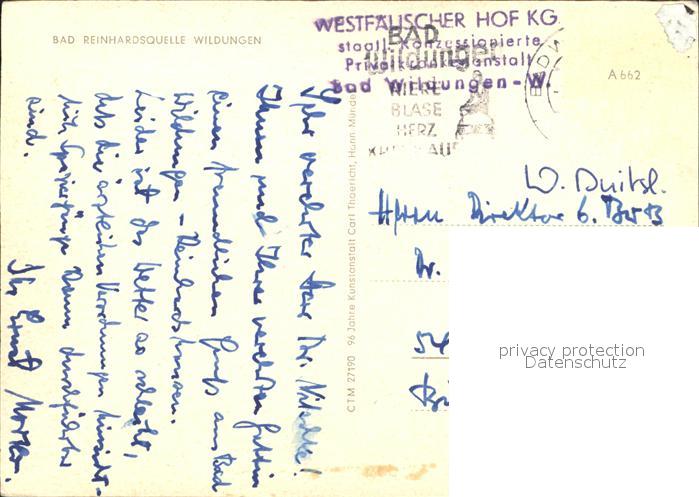 BAD REINHARDSQUELLE WILDUNGEN
WESTFÄLISCHER HOF KG.
staatl. konzessionierte
Privatkrankenanstalt
Bad Wildungen-W.
BAD
Wildungen
NIERE
BLASE
HERZ
A 662
Sehr verehrter Herr Dr.
Ihnen und Ihrer verehrten Gattin
einen freundlichen Gruß aus Bad
Wildungen - Reinhardshausen.
Leider ist das Wetter so schlecht,
daß die ärztlichen Verordnungen hinsicht-
lich Spaziergänge kaum durchführbar
sind.
Ihr Ernst
CTM 27190 96 Jahre Kunstanstalt Carl Thoericht, Hann. Münden
W. Duitsl.
Herrn Direktor
Dr.
54
privacy protection
Datenschutz